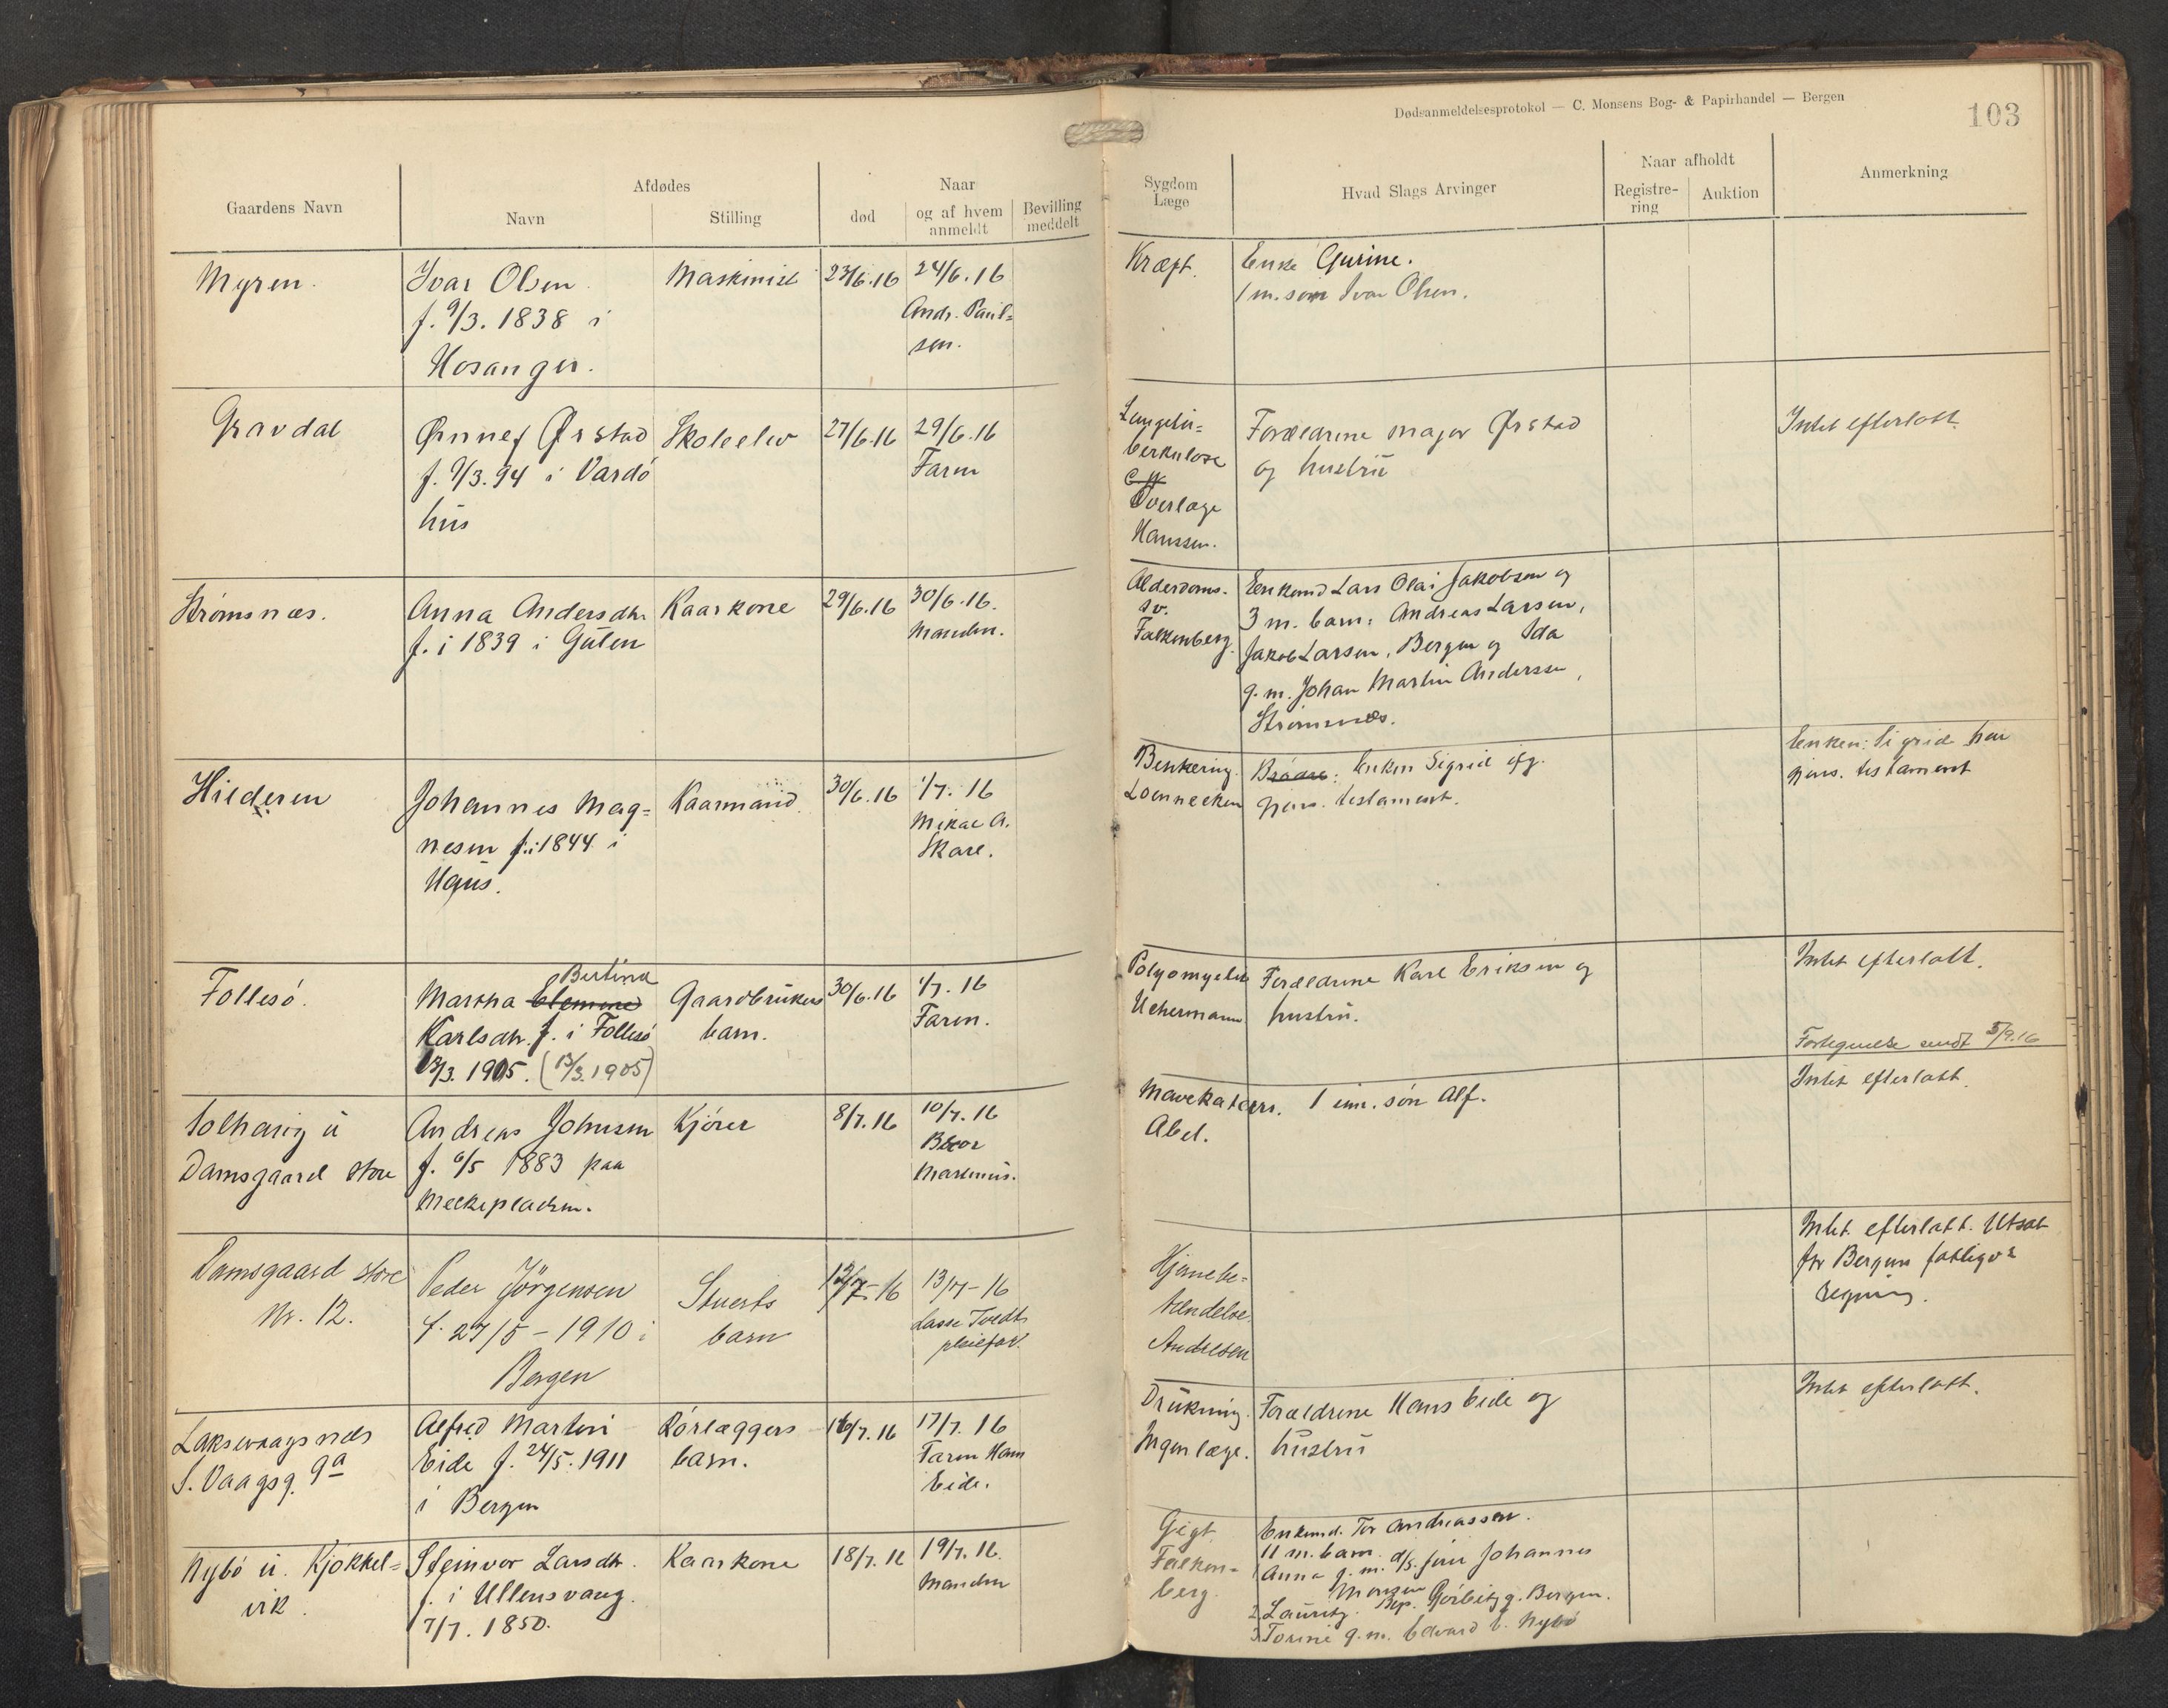 Dødsanmeldelsesprotokol — C. Monsens Bog- & Papirhandel — Bergen
103
Gaardens Navn
Afdødes
Navn
Stilling
Naar
død
og af hvem anmeldt
Bevilling meddelt
Sygdom
Læge
Hvad Slags Arvinger
Naar afholdt
Registre-
ring
Auktion
Anmerkning
Myren.
Ivar Olsen
f. 9/3. 1838 i
Hosanger.
Maskinist
23/6.16
24/6.16
Andr. Paul-
sen.
Kræft.
Enke Gurine.
1 m. søn Ivar Olsen.
Gravdal
Ørstad
f. 9/3.94 i Vardö
hus
Skoleelev
27/6.16
29/6.16
Faren
Lungetu-
berkulose
Overlæge
Hanssen.
Forældrene major Ørstad
og hustru
Intet efterlatt.
Strømsnæs.
Anna Andersdtr.
f. i 1839 i Gulen
Kaarkone
29/6.16
30/6.16.
Manden.
Alderdoms-
sv.
Falkenberg.
Enkemd Lars Olai Jakobsen og
3 m. barn: Andreas Larsen,
Jakob Larsen, Bergen og Ida
g. m. Johan Martin Anderssen,
Strømsnæs.
Hilderen
Johannes Mag-
nesen f. i 1844 i
Haus.
Kaarmand
30/6.16
1/7.16
Mikal A.
Skare.
Loennecken
Brødre: Enken Sigrid ifg.
gjens. testament.
Enken: Sigrid har
gjens. testament
Follesö.
Bertina
Martha
Karlsdtr. f. i Follesö
13/3. 1905. (13/3.1905)
Gaardbrukers
barn.
30/6.16
1/7.16
Faren.
Polyomyelit
Uchermann
Forældrene Karl Eriksen og
hustru.
Intet efterlatt.
Fortegnelse sendt 5/9.16
Solhaug u
Damsgaard store
Andreas Johnsen
f. 6/5 1883 paa
Møllepladsen.
Kjörer
8/7.16
10/7.16
Bror
Martinus.
Mavekatarrh.
Abel.
1 um. søn Alf.
Intet efterlatt.
Damsgaard store
Nr. 12.
Peder Jörgensen
f. 27/5 - 1910 i
Bergen
Stuerts
barn
12/7-16
13/7-16
Lasse Tvedt
pleiefar.
Hjernebe-
tændelse.
Andresen
Intet efterlatt. Utsat
for Bergens fattigv s
regning.
Laksevaagsnes
S. Vaagsg. 9a
Alfred Martin
Eide f. 24/5. 1911
i Bergen
Rørlæggers
barn.
16/7.16
17/7.16
Faren Hans
Eide.
Drukning.
Ingen læge.
Forældrene Hans Eide og
hustru
Intet efterlatt.
Nybö u. Kjökkel-
vik.
Steinvor Larsdtr.
f. i Ullensvang
7/7. 1850.
Kaarkone
18/7.16
19/7.16.
Manden
Gigt.
Falken-
berg.
Enkemd. Tor Andreassen.
11 m. barn.
1 Anna g. m. Johannes
Monsen
2 Lauritz. Bergen.
3 Torine g. m. Edvard E. Nybö